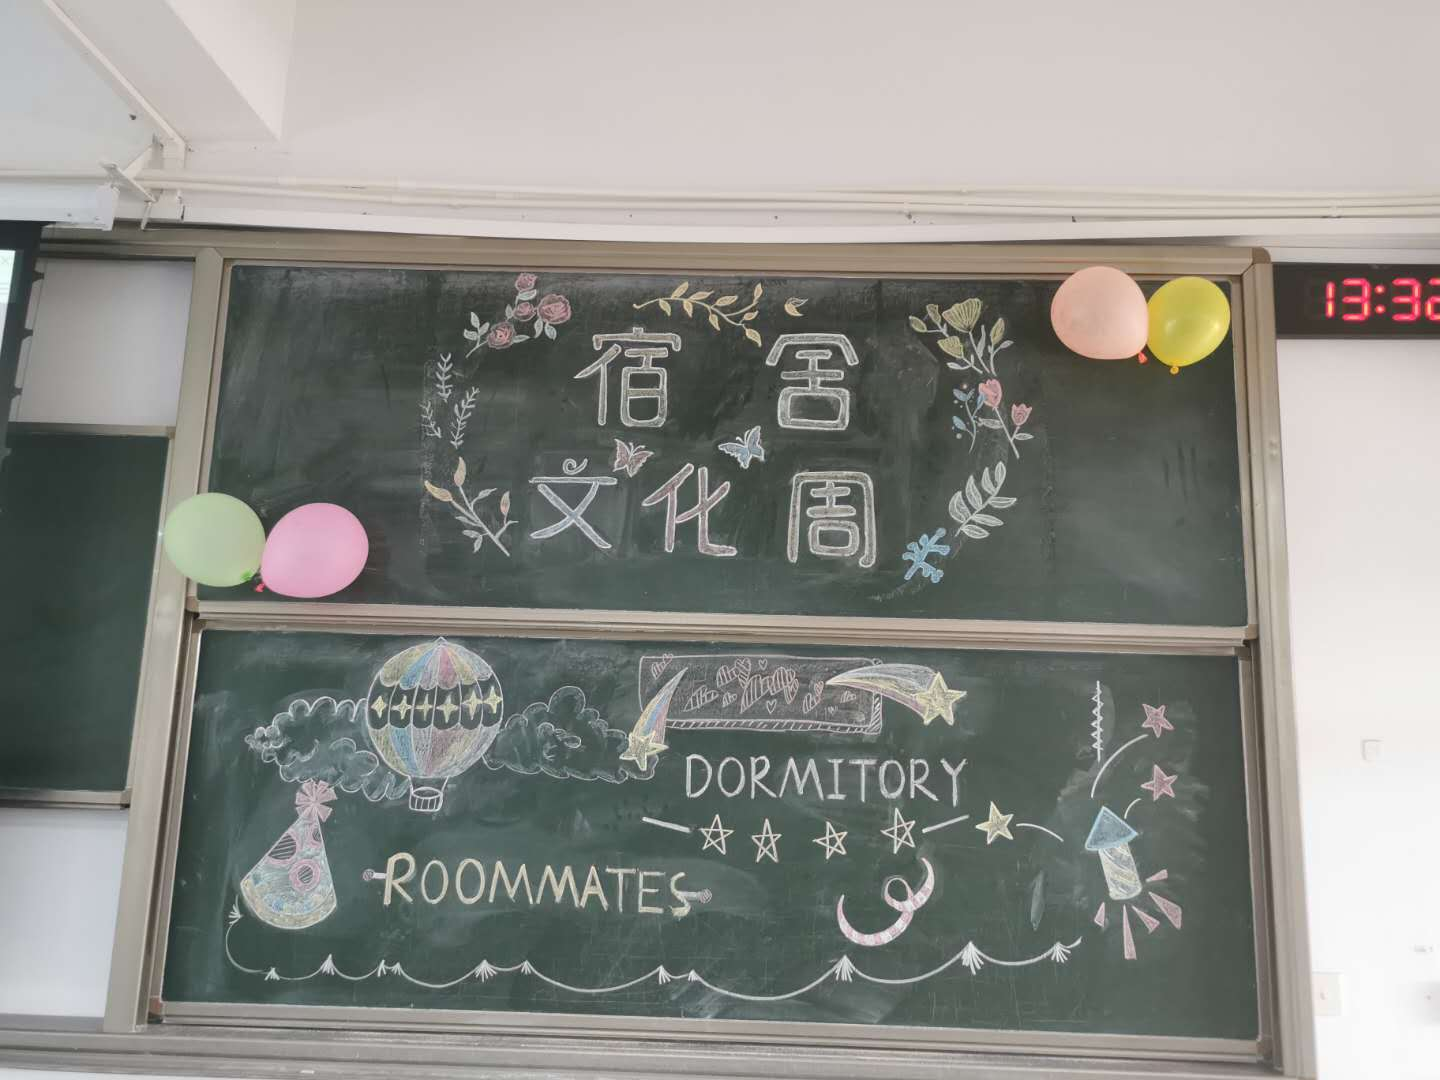 宿舍
文化周
DORMITORY
ROOMMATES